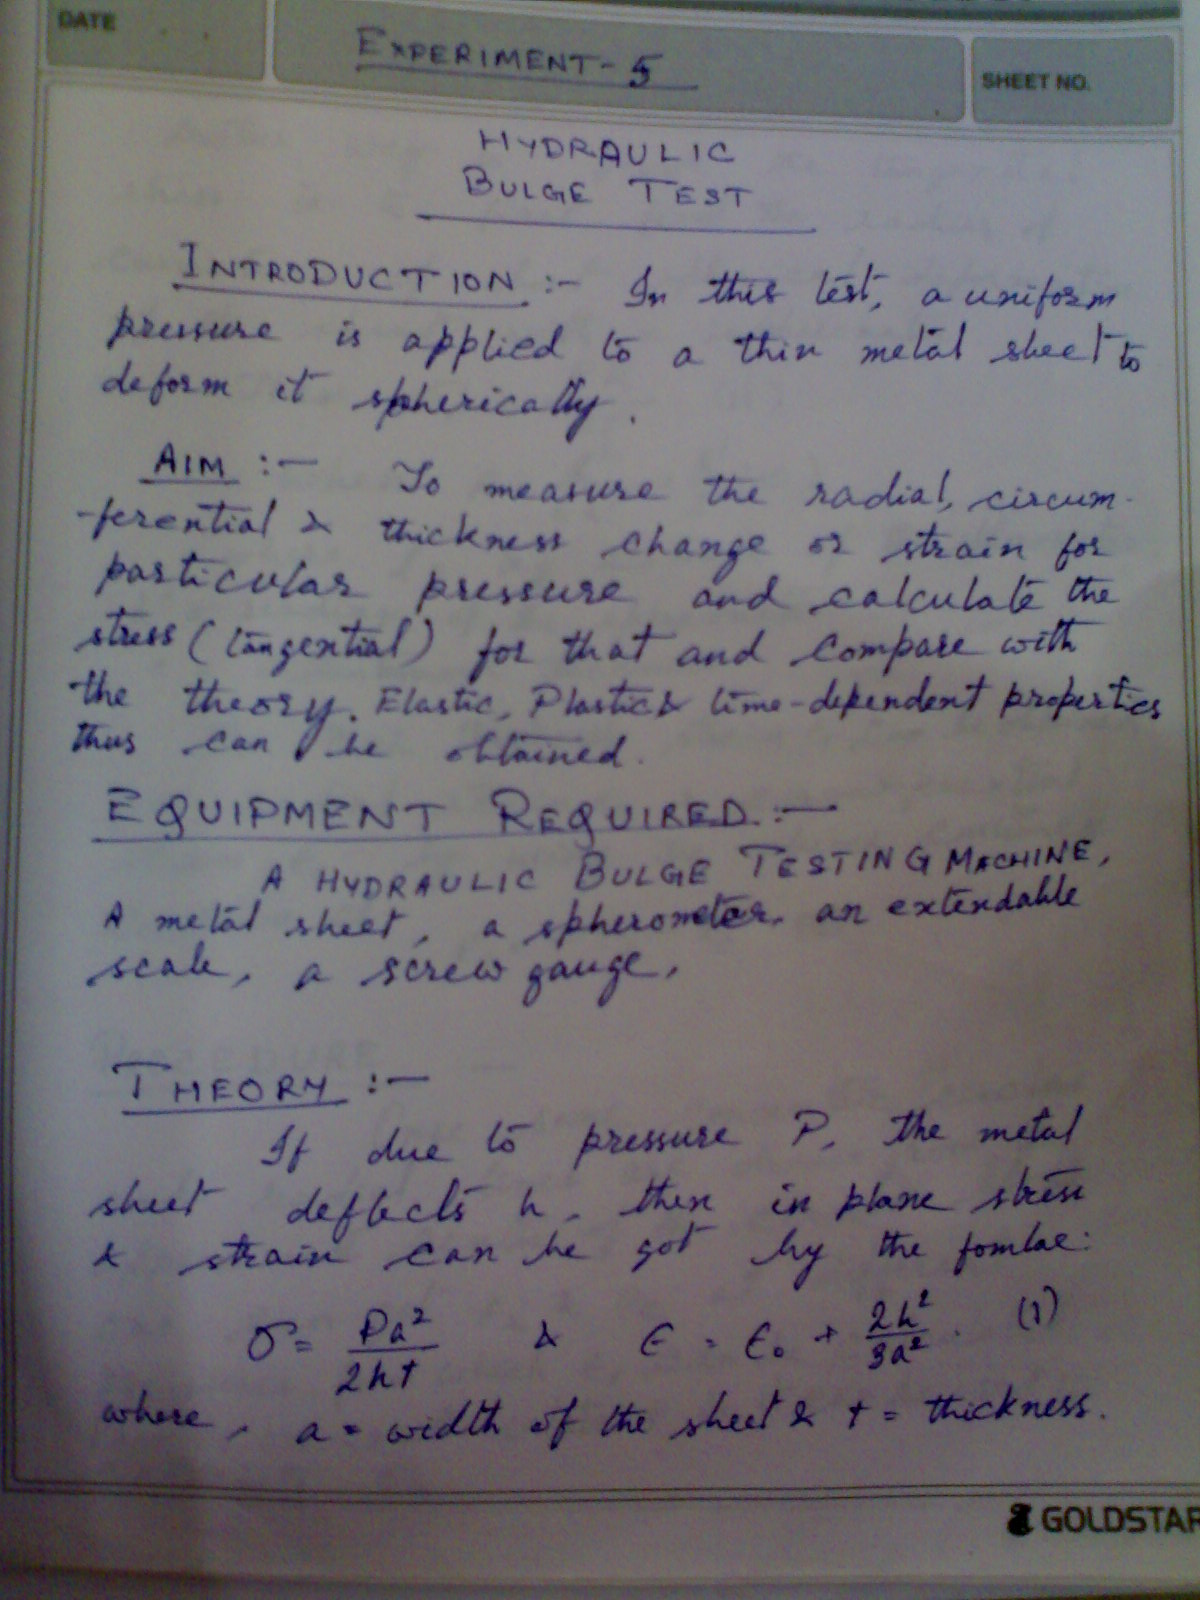 DATE
EXPERIMENT-5
SHEET NO.
HYDRAULIC
BULGE TEST
INTRODUCTION :- In this test, a uniform
pressure is applied to a thin metal sheet to
deform it spherically.
AIM :- To measure the radial, circum-
-ferential & thickness change or strain for
particular pressure and calculate the
stress (tangential) for that and compare with
the theory. Elastic, Plastic & time-dependent properties
thus can be obtained.
EQUIPMENT REQUIRED :-
A HYDRAULIC BULGE TESTING MACHINE,
A metal sheet, a spherometer, an extendable
scale, a screw gauge.
THEORY :-
If due to pressure P, the metal
sheet deflects h, then in plane stress
& strain can be got by the fomlae:
σ = Pa²/2ht & ϵ = ϵ₀ + 2h²/3a². (1)
where, a = width of the sheet & t = thickness.
GOLDSTAR